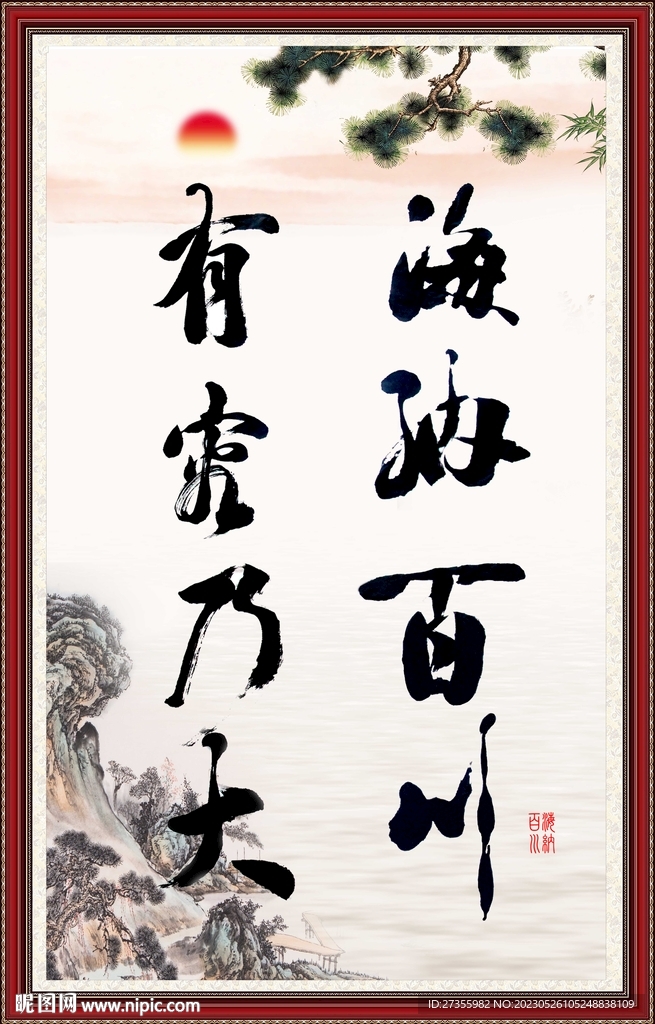 海纳百川
有容乃大
海納
百川
昵图网 www.nipic.com
ID:27355982 NO:20230526105248838109